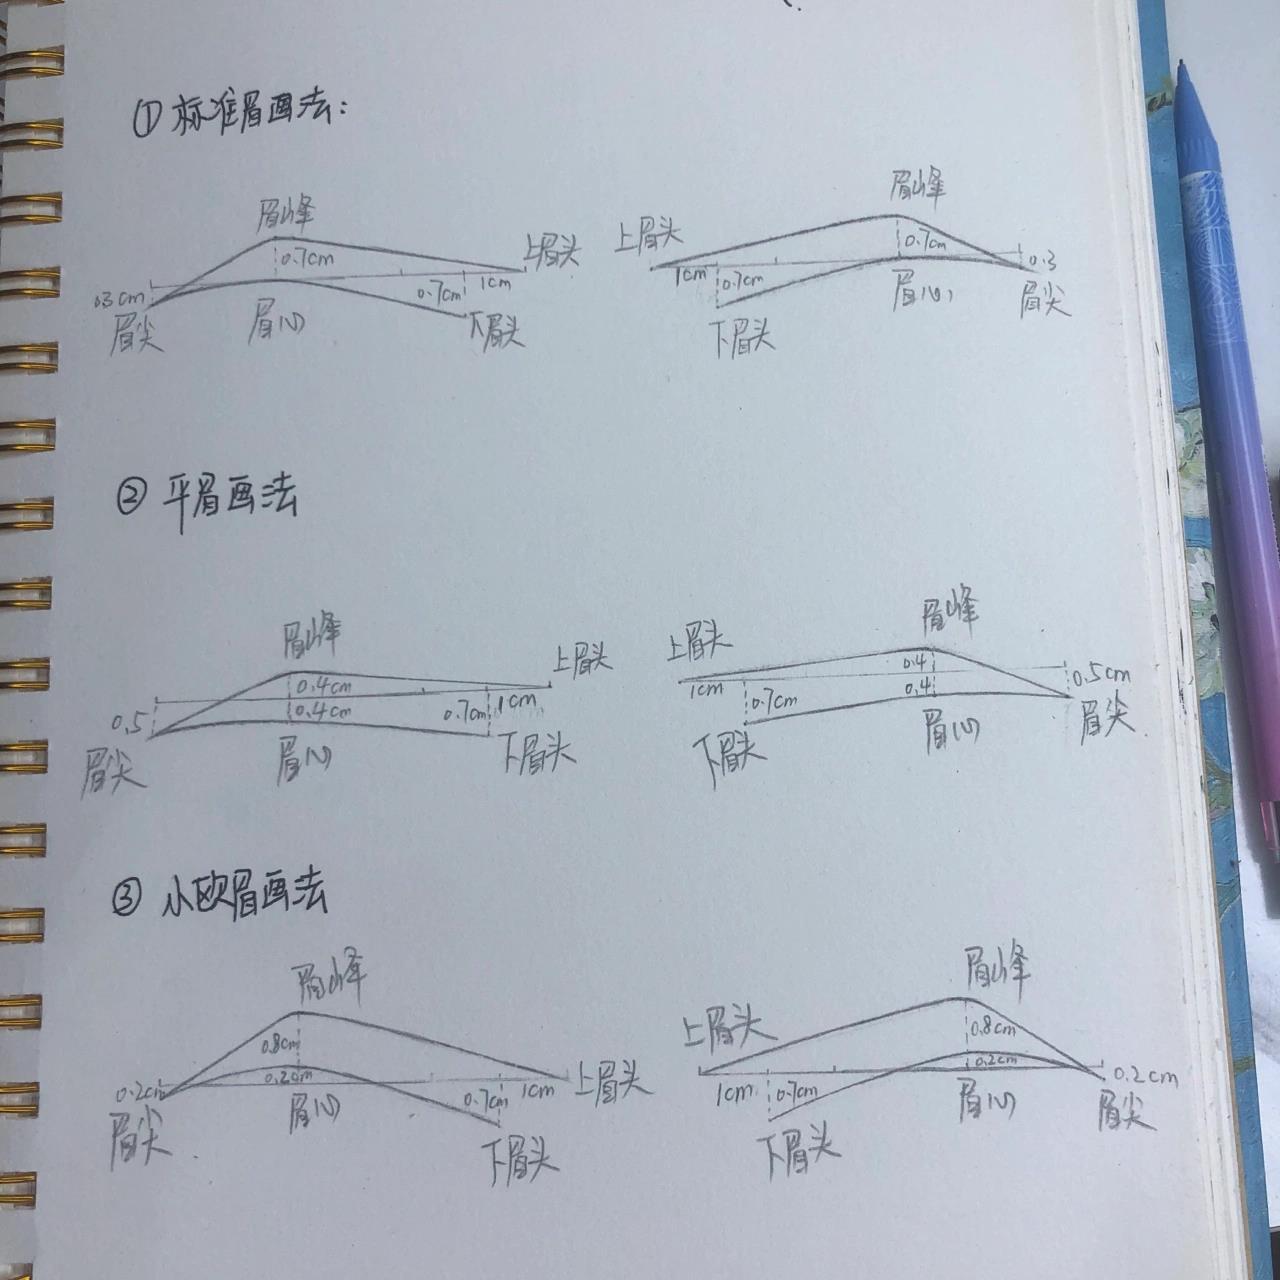 ① 标准眉画法:
眉峰 眉峰
上眉头 上眉头
0.7cm 0.7cm
0.3cm 0.7cm 1cm 1cm 0.7cm 0.3
眉尖 眉心 下眉头 下眉头 眉心 眉尖
② 平眉画法
眉峰 眉峰
上眉头 上眉头
0.4cm 1cm 0.4 0.5cm
0.5 0.4cm 0.7cm 1cm 0.7cm 0.4
眉尖 眉心 下眉头 下眉头 眉心 眉尖
③ 小欧眉画法
眉峰 眉峰
0.8cm 上眉头 0.8cm
0.2cm 0.2cm 0.7cm 1cm 上眉头 1cm 0.7cm 0.2cm 0.2cm
眉尖 眉心 下眉头 下眉头 眉心 眉尖